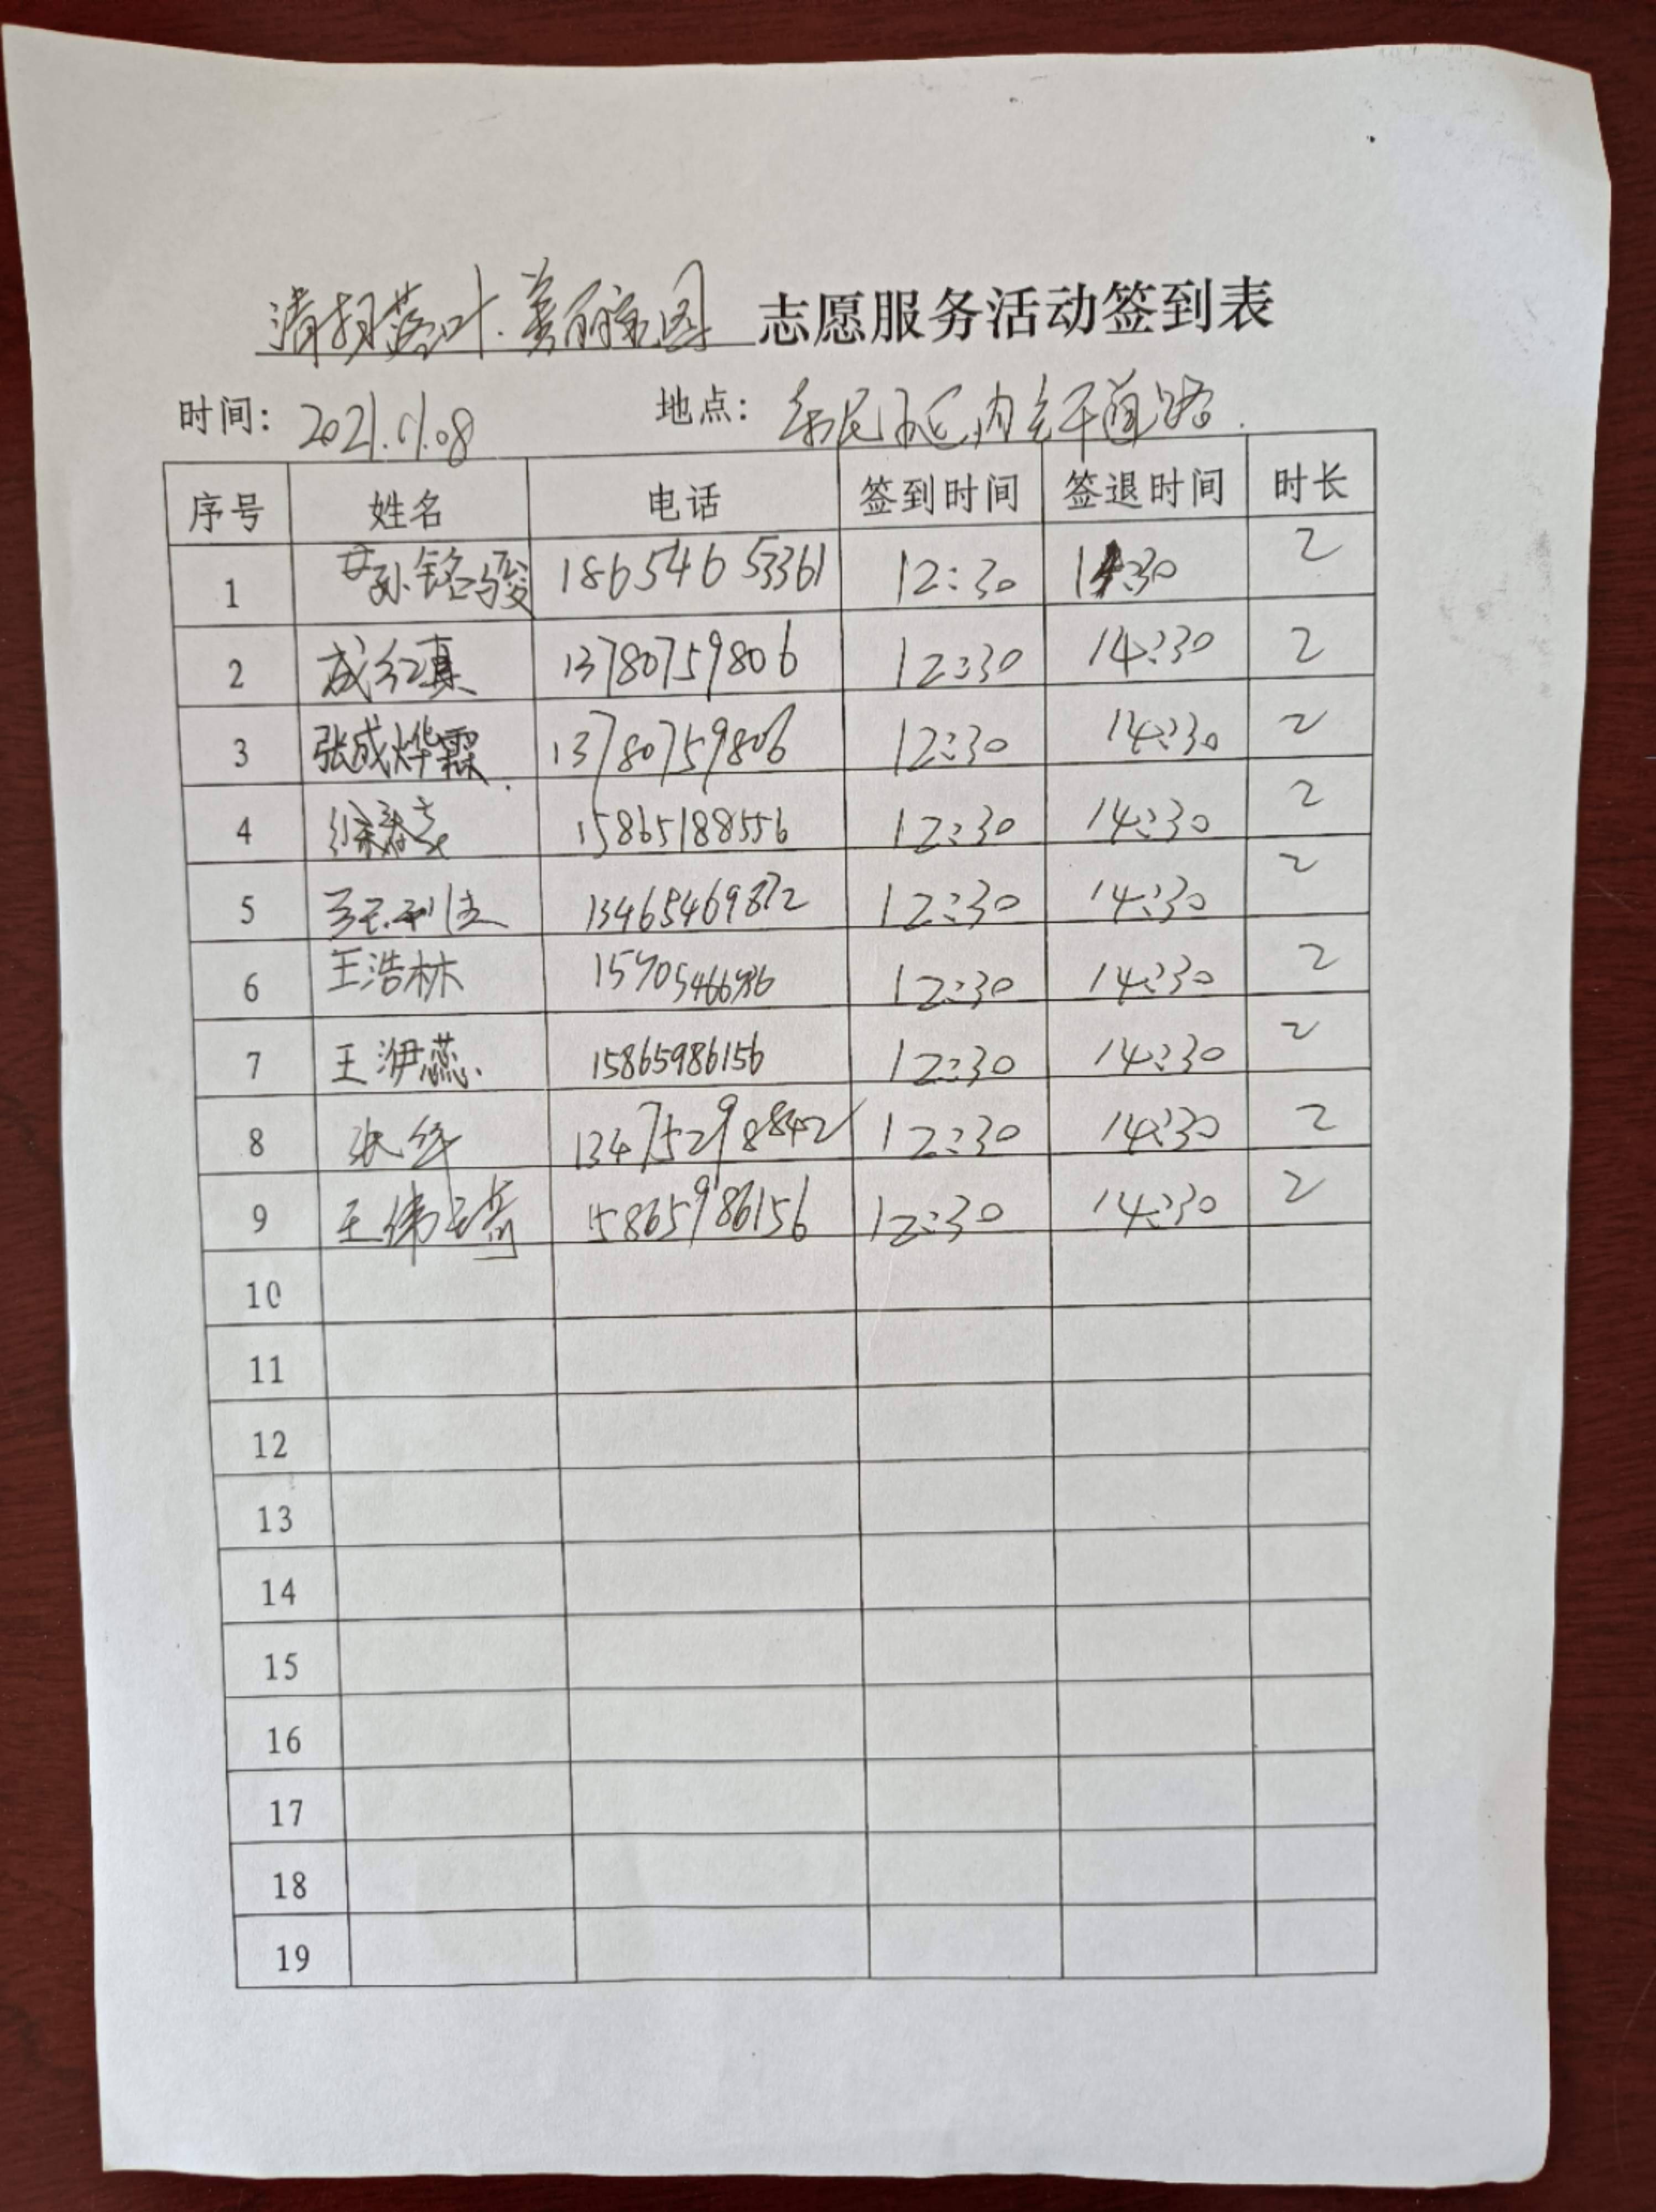 清扫落叶.美丽家园 志愿服务活动签到表
时间: 2021.11.08 地点: 内主干道路.
序号 姓名 电话 签到时间 签退时间 时长
1 孙铭骏 18654653361 12:30 14:30 2
2 成红真 13780759806 12:30 14:30 2
3 张成烨霖 13780759806 12:30 14:30 2
4 15865188556 12:30 14:30 2
5 13465469872 12:30 14:30 2
6 王浩林 12:30 14:30 2
7 王渺蕊 15865986156 12:30 14:30 2
8 张华 13475298842 12:30 14:30 2
9 王伟 15865986156 12:30 14:30 2
10
11
12
13
14
15
16
17
18
19